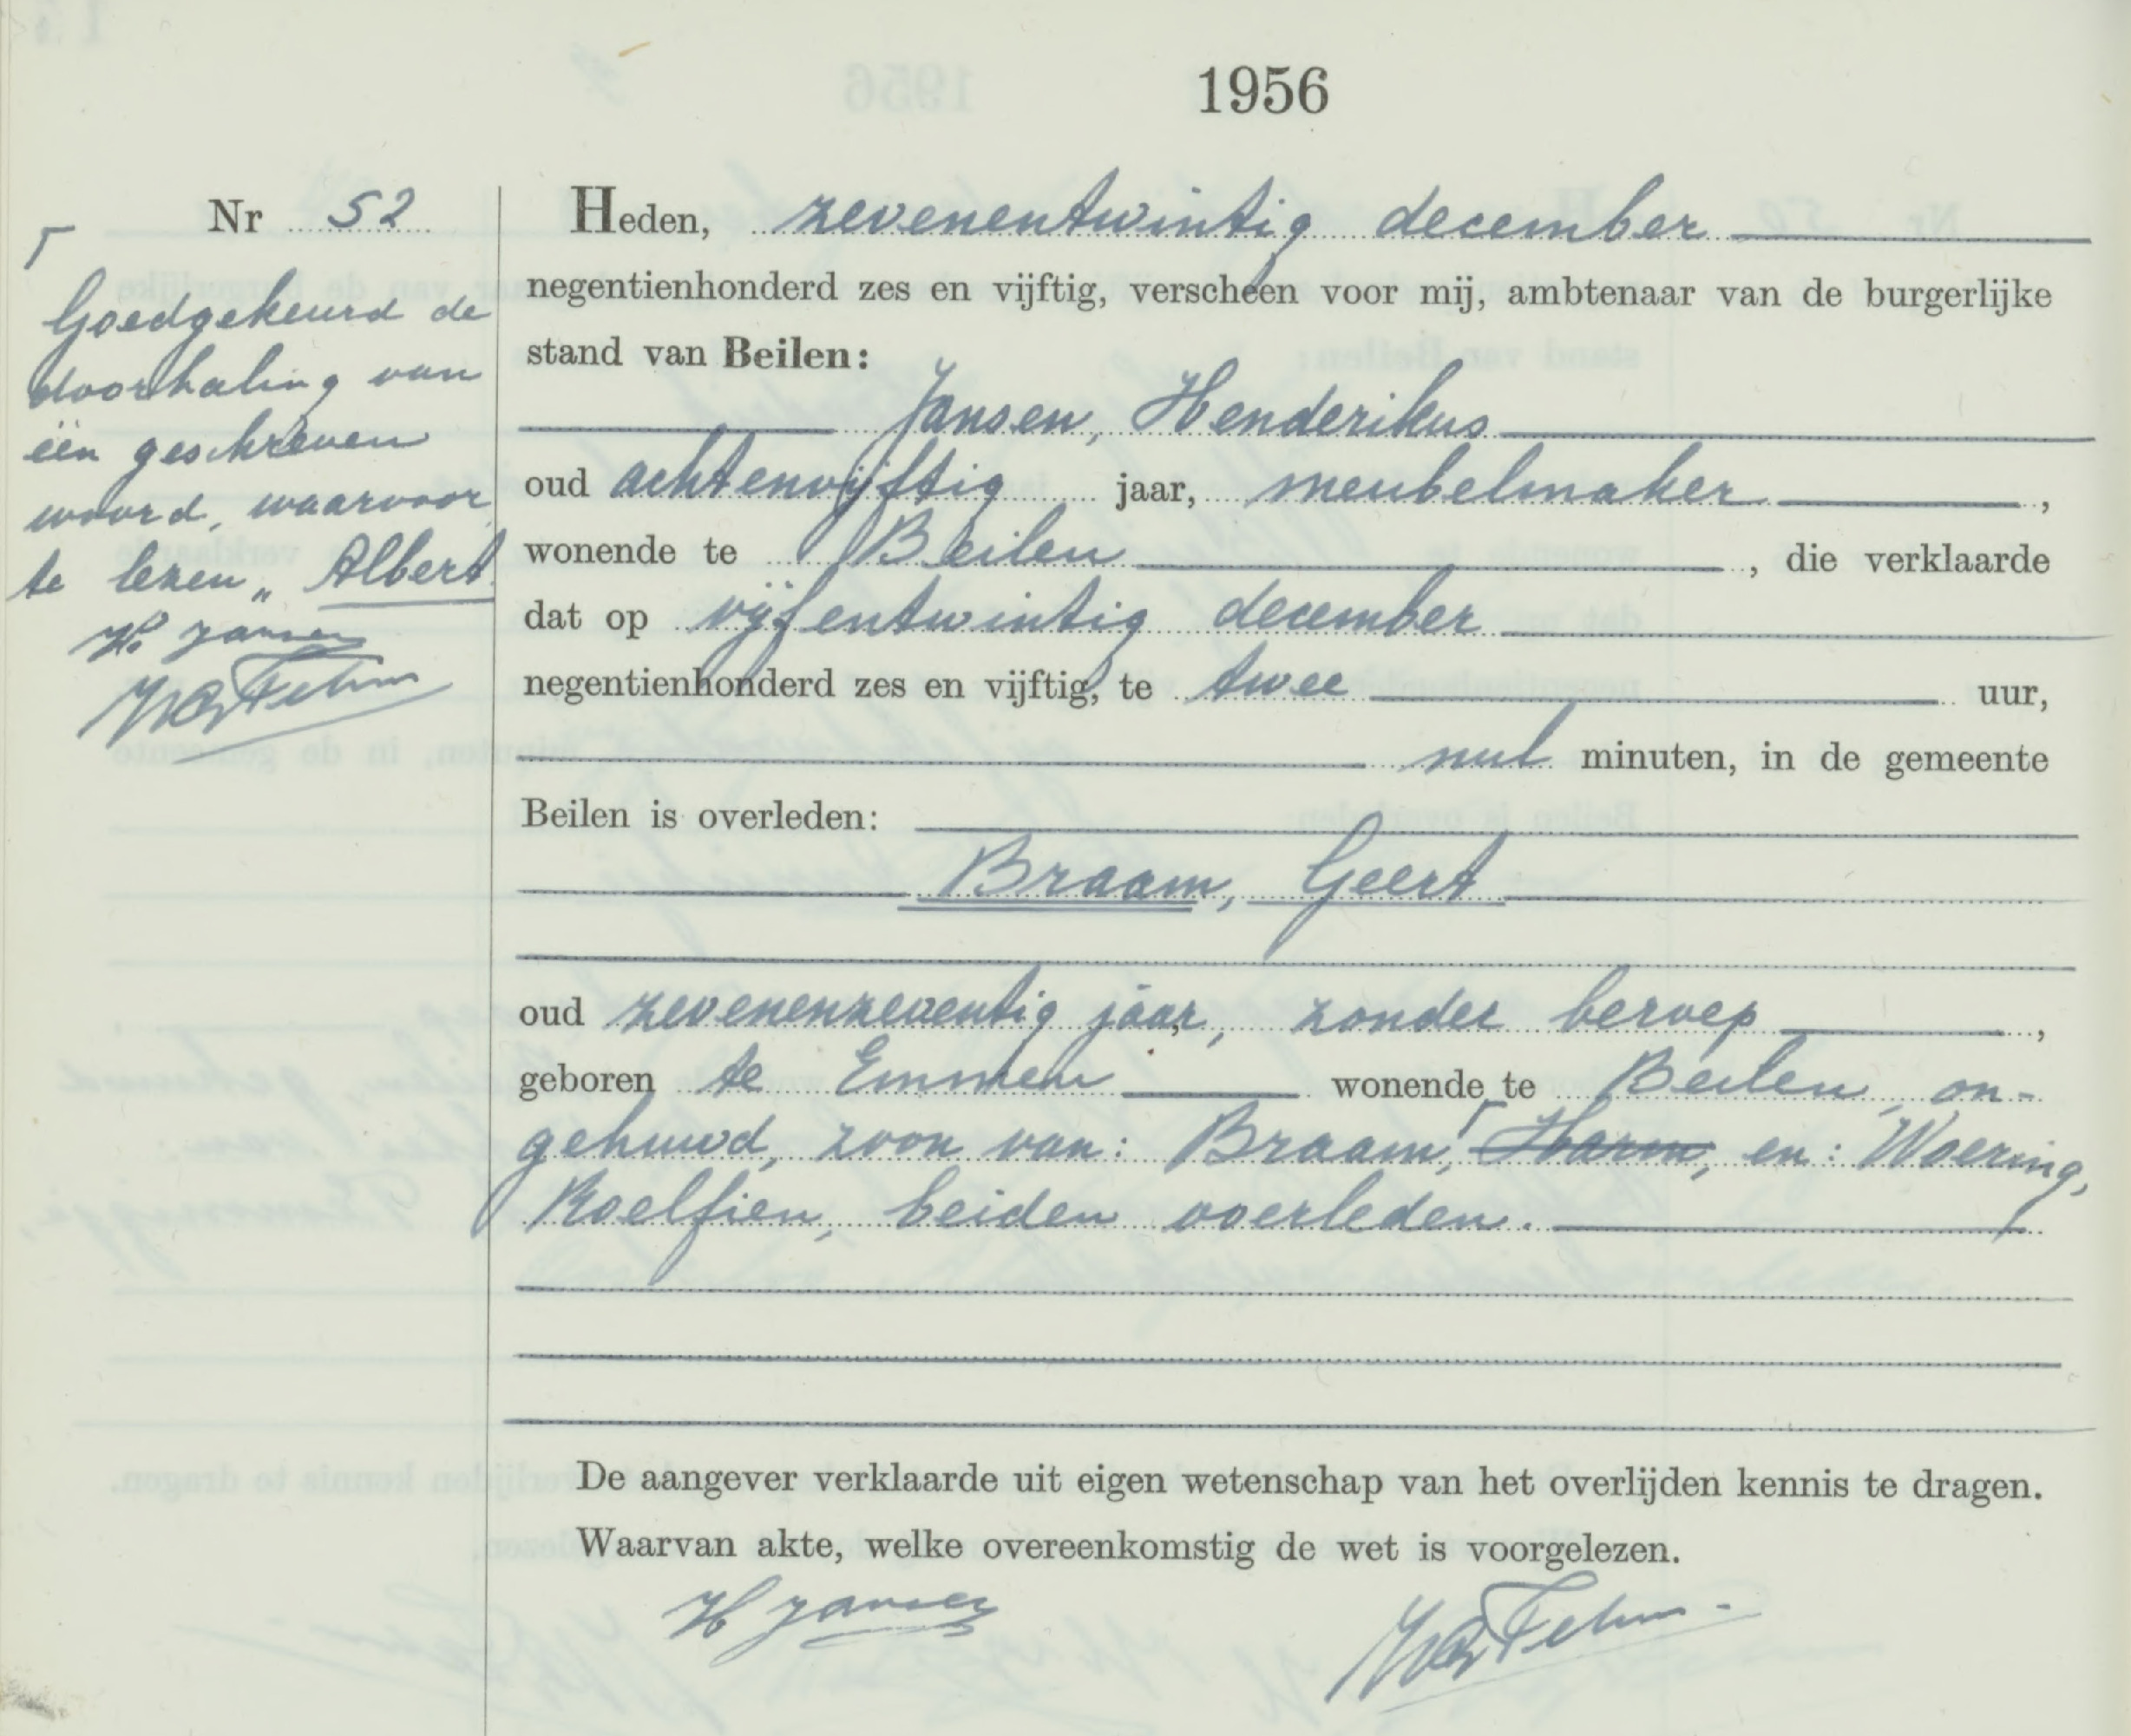 1956
Nr 52
Goedgekeurd de
doorhaling van
één geschreven
woord, waarvoor
te lezen „ Albert
H. Jansen
Heden, zevenentwintig december
negentienhonderd zes en vijftig, verscheen voor mij, ambtenaar van de burgerlijke
stand van Beilen:
Jansen, Henderikus
oud achtenvijftig jaar, meubelmaker ,
wonende te Beilen , die verklaarde
dat op vijfentwintig december
negentienhonderd zes en vijftig, te twee uur,
nul minuten, in de gemeente
Beilen is overleden:
Braam, Geert
oud zevenenzeventig jaar, zonder beroep ,
geboren te Emmen wonende te Beilen, on-
gehuwd, zoon van: Braam, Harm, en: Woering,
Roelfien, beiden overleden.
De aangever verklaarde uit eigen wetenschap van het overlijden kennis te dragen.
Waarvan akte, welke overeenkomstig de wet is voorgelezen.
H Jansen